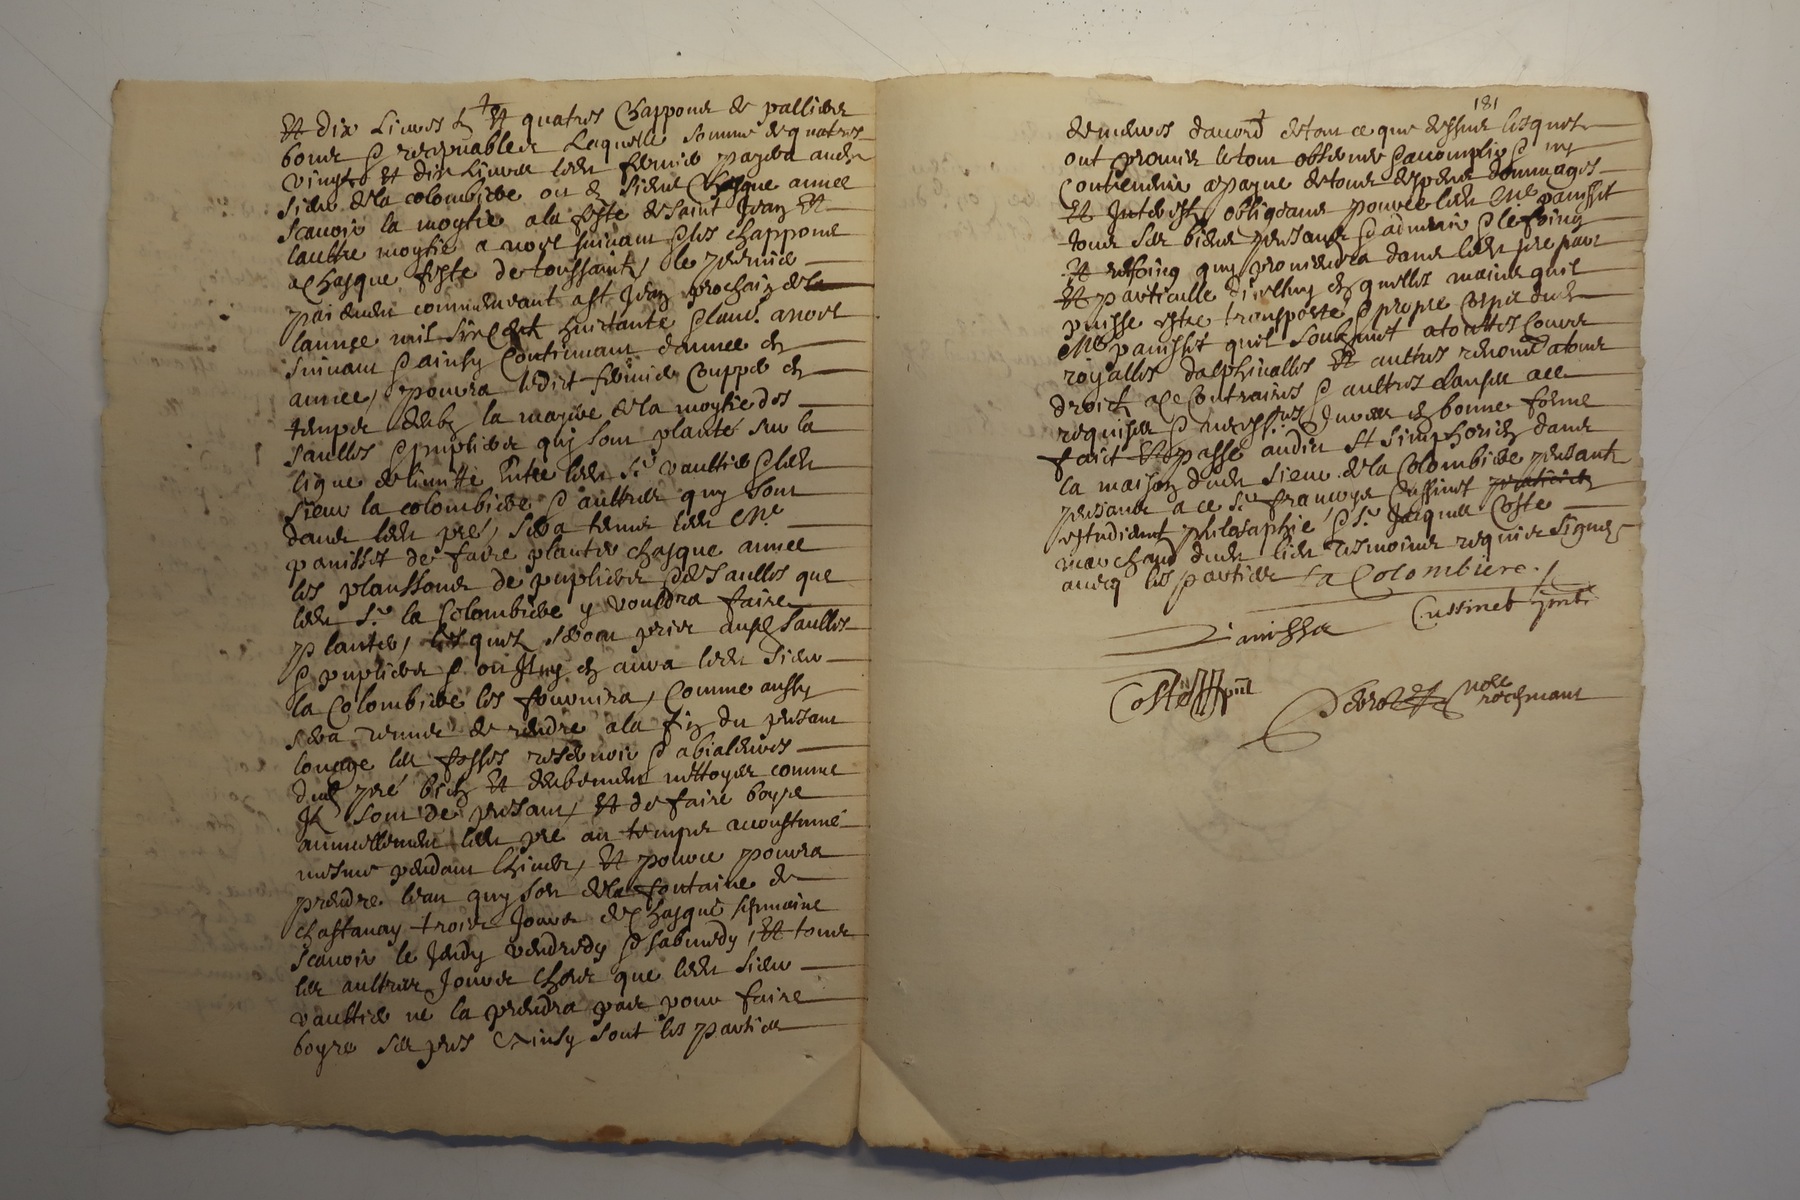 Et dix Livres & Et quatres Chappons de palliers
bons & recepvables Laquelle somme de quatres
vingts Et dix Livres ledit fermier payera audit
sieur de la colombiere ou & sieurs Chasque annee
scavoir la moytie a la feste de saint Jean Et
laultre moytie a noel suivant & les chappons
a Chasque feste de toussaints, le premier
paiement commencant a st Jean prochain de la
lannee mil six cent huictante & laud. a noel
suivant & ainsy Continuant dannee en
annee, & pourra ledict fermier Coupper en
temps deub la mayere de la moytie des
saulles & pupliers quy sont planté sur la
ligne de limitte Entre ledit Sr vaultier & ledit
sieur la colombiere & aultres quy sont
dans ledit pré, sera tenu ledit Me
panisset de faire planter chasque annee
les planssons de pupliers & de saulles que
ledit Sr la Colombiere y vouldra faire
planter, lesquels seront pris ausd saulles
& pupliers & ou Il ny en aura ledit sieur
la Colombiere les fournira, Comme aussy
sera tenu de rendre a la fin du present
louage les fosses reservoir & abialeures
dud pré bien Et deubement nettoyer comme
Il sont de present, Et de faire boyre
annuellement ledit pre au temps accoustumé
mesme pendant lhiver, Et pource pourra
prendre leau quy sort de la fontaine de
chastanay trois Jours de Chasque sepmaine
scavoir le Jeudy vendredy & sabmedy, Et tous
les aultres Jours Chose que ledit sieur
vaultier ne la prendra pas pour faire
boyre ses pres Ainsy sont les parties
181
demeures daccord de tout ce que dessus lesquels
ont promis le tout observer & accomplir & ny
Contrevenir a payne de tous despens dommages
Et Interests, obligeans pource ledit Me panisset
tous ses biens presants & advenir & le foing
Et refoing quy proviendra dans ledit pre par
Et particulle dicelluy en quelles mains quil
puisse estre transporté & propre Corps dudit
Me panisset quil soubzmet a touttes Cours
royalles dalphinalles Et aultres renond a tous
droits a ce Contraires & aultres clauses a ce
requises & necess.res Jurees en bonne forme
faict Et passé audit St Simphorien dans
la maison dudit sieur de la Colombiere presant
presants a ce Sr francoys Cussinet
estudient philosophie & Sr Jacques Coste
marchand dudit lieu tesmoins requis signes
avecq les parties La Colombiere.
Cussinet pnt
Panisset
Coste pnt
Derolet nore rocemant